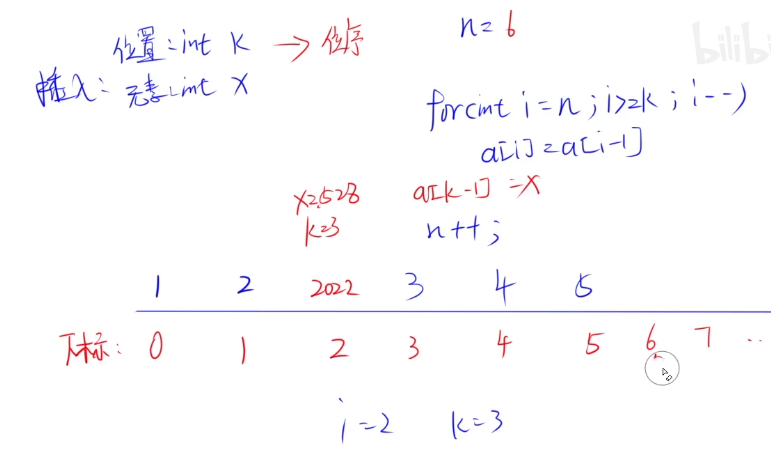 位置:int k → 位序
n=6
插入:
元素:int x
for(int i=n;i>=k;i--)
a[i]=a[i-1]
x=528
a[k-1]=x
k=3
n++;
1 2 2022 3 4 5
下标: 0 1 2 3 4 5 6 7 ..
i=2 k=3
bilibi